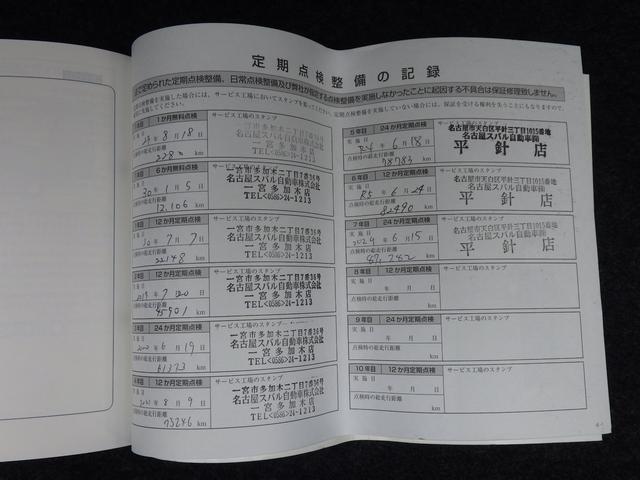 定期点検整備の記録
定められた定期点検整備、日常点検整備及び弊社が指定する点検整備を実施しなかったことに起因する不具合は保証修理致しません。
1か月無料点検
サービス工場のスタンプ
29年8月18日
点検時の総走行距離
228 km
一宮市多加木二丁目7番36号
名古屋スバル自動車株式会社
一宮多加木店
TEL<0586>24-1213
6か月無料点検
サービス工場のスタンプ
30年1月5日
点検時の総走行距離
12,106 km
一宮市多加木二丁目7番36号
名古屋スバル自動車株式会社
一宮多加木店
TEL<0586>24-1213
12か月定期点検
サービス工場のスタンプ
30年7月7日
点検時の総走行距離
22148 km
一宮市多加木二丁目7番36号
名古屋スバル自動車株式会社
一宮多加木店
TEL<0586>24-1213
12か月定期点検
サービス工場のスタンプ
点検時の総走行距離
45901 km
一宮市多加木二丁目7番36号
名古屋スバル自動車株式会社
一宮多加木店
TEL<0586>24-1213
24か月定期点検
サービス工場のスタンプ
6月19日
点検時の総走行距離
61373 km
一宮市多加木二丁目7番36号
名古屋スバル自動車株式会社
一宮多加木店
TEL<0586>24-1213
12か月定期点検
サービス工場のスタンプ
2021年8月9日
点検時の総走行距離
73246 km
一宮市多加木二丁目7番36号
名古屋スバル自動車株式会社
一宮多加木店
TEL<0586>24-1213
5年目 24か月定期点検
サービス工場のスタンプ
実施日 R4年6月18日
点検時の総走行距離
78783 km
名古屋市天白区平針三丁目1015番地
名古屋スバル自動車㈱
平針店
6年目 12か月定期点検
サービス工場のスタンプ
実施日 R5年6月24日
点検時の総走行距離
82490 km
名古屋市天白区平針三丁目1015番地
名古屋スバル自動車㈱
平針店
7年目 24か月定期点検
サービス工場のスタンプ
実施日 2024年6月15日
点検時の総走行距離
87,282 km
名古屋市天白区平針三丁目1015番地
名古屋スバル自動車㈱
平針店
8年目 12か月定期点検
サービス工場のスタンプ
実施日 年 月 日
点検時の総走行距離
km
9年目 24か月定期点検
サービス工場のスタンプ
実施日 年 月 日
点検時の総走行距離
km
10年目 12か月定期点検
サービス工場のスタンプ
実施日 年 月 日
点検時の総走行距離
km